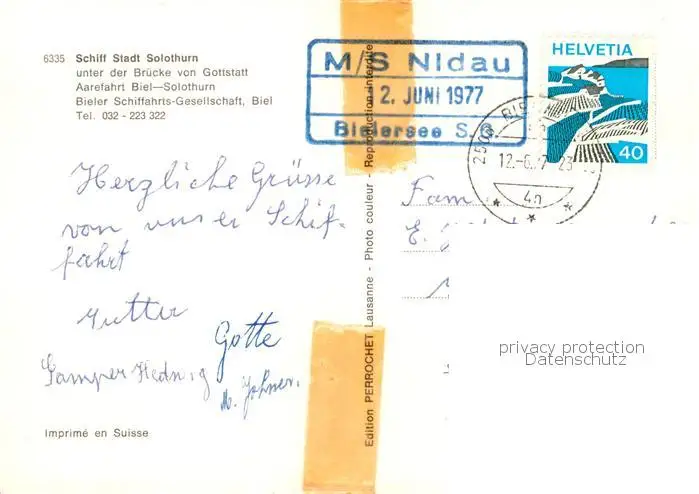 6335 Schiff Stadt Solothurn
unter der Brücke von Gottstatt
Aarefahrt Biel—Solothurn
Bieler Schiffahrts-Gesellschaft, Biel
Tel. 032 - 223 322
M/S Nidau
2. JUNI 1977
Bielersee S. G.
HELVETIA
40
2500 BI
12.-6. 77 23
4n
Herzliche Grüsse
von unser Schif-
fahrt
Mutter
Gotte
Gamper Hedwig
M. Johner.
Fam
E.
Imprimé en Suisse
Edition PERROCHET Lausanne - Photo couleur - Reproduction interdite
privacy protection
Datenschutz